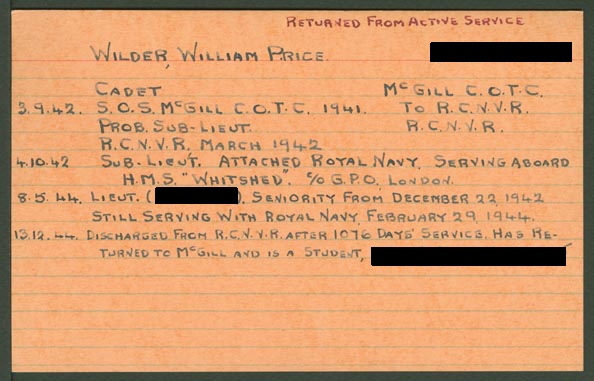 RETURNED FROM ACTIVE SERVICE
WILDER, WILLIAM PRICE.
CADET McGILL C.O.T.C.
3.9.42. S.O.S. McGILL C.O.T.C. 1941. TO R.C.N.V.R.
PROB. SUB-LIEUT. R.C.N.V.R.
R.C.N.V.R. MARCH 1942
4.10.42 SUB-LIEUT. ATTACHED ROYAL NAVY, SERVING ABOARD
H.M.S. "WHITSHED". C/O G.P.O. LONDON.
8.5.44. LIEUT. ( ). SENIORITY FROM DECEMBER 22, 1942
STILL SERVING WITH ROYAL NAVY, FEBRUARY 29, 1944.
13.12.44. DISCHARGED FROM R.C.N.V.R. AFTER 1076 DAYS' SERVICE. HAS RE-
TURNED TO McGILL AND IS A STUDENT,